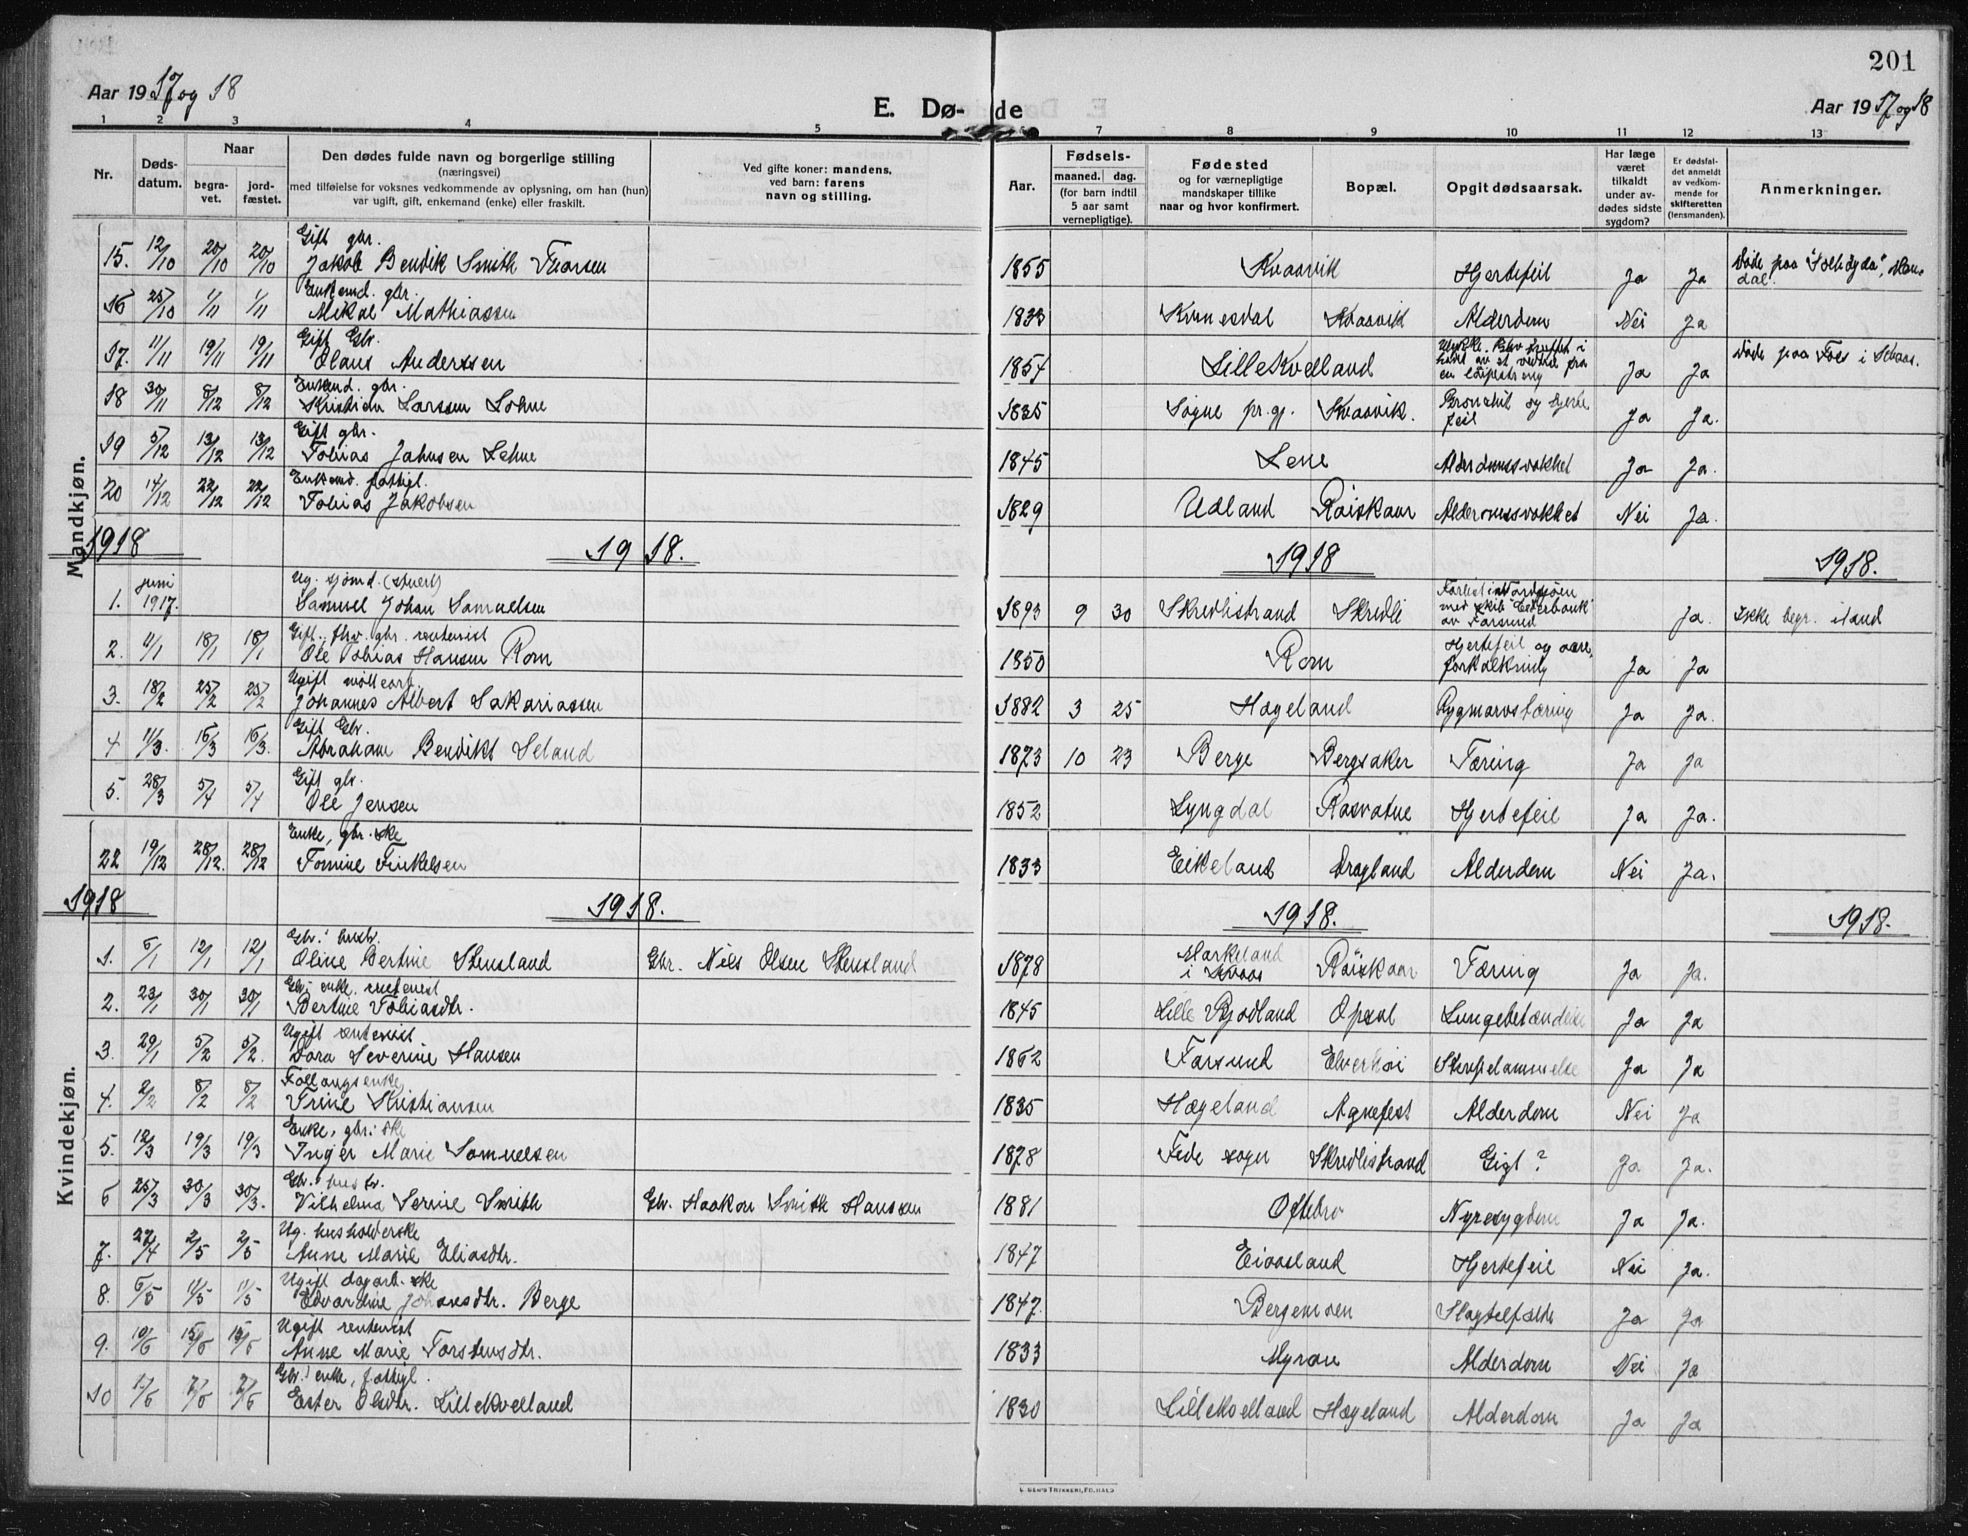 201
Aar 1917 og 18
E. Dø- de
Aar 1917 og 18
1 2 3 4 5 6 7 8 9 10 11 12 13
Nr.
Døds-
datum.
Naar
begra-
vet.
jord-
fæstet.
Den dødes fulde navn og borgerlige stilling
(næringsvei)
med tilføielse for voksnes vedkommende av oplysning, om han (hun)
var ugift, gift, enkemand (enke) eller fraskilt.
Ved gifte koner: mandens,
ved barn: farens
navn og stilling.
Aar.
Fødsels-
maaned. dag.
(for barn indtil
5 aar samt
vernepligtige).
Fødested
og for værnepligtige
mandskaper tillike
naar og hvor konfirmert.
Bopæl.
Opgit dødsaarsak.
Har læge
været
tilkaldt
under av-
dødes sidste
sygdom?
Er dødsfal-
det anmeldt
av vedkom-
mende for
skifteretten
(lensmanden).
Anmerkninger.
Mandkjøn.
Gift gbr.
15. 12/10 20/10 20/10 Jakob Bendik Smith Tharsen 1855 Kvaavik Hjertefeil Ja Ja
Enkemd. gbr.
16 25/10 1/11 1/11 Mikal Mathiassen 1833 Kvinesdal Kvaavik Alderdom Nei Ja
Gift Gbr.
17. 11/11 19/11 19/11 Olaus Anderssen 1857 Lille Kvelland Ja Ja Døde paa Foss i Kvaas.
Enkemd. gbr.
18 30/11 8/12 8/12 Kristian Larssen Lohne 1835 Søgne pr.gj. Kvaavik. Bronchit og hjerte
feil Ja Ja.
Gift gbr.
19 5/12 13/12 13/12 Tobias Jahnsen Lehne 1845 Lene Alderdomssvakhet Ja Ja.
Enkemd. fattigl.
20 14/12 22/12 22/12 Tobias Jakobsen 1829 Udland Röiskaar Alderdomssvakhet Nei Ja.
1918 1918. 1918 1918.
Ug. sjømd. (stuert)
1. juni 1917. Samuel Johan Samuelsen 1893 9 30 Skredlistrand Skredli Forlist i Nordsjøen
med skib "Ederbank"
av Farsund Ja. Ikke begr. iland
Gift, fhv. gbr. rentenist
2. 4/1 18/1 18/1 Ole Tobias Hansen Rom 1850 Rom Hjertefeil og aare-
forkalkning Ja Ja
Ugift möllearb.
3. 18/2 25/2 25/2 Johannes Albert Sakariassen 1882 3 25 Hægeland Rygmarvstæring Ja Ja.
Gift Gbr.
4 11/3. 16/3 16/3. Abraham Bendikt Seland 1873 10 23 Berge Bergsaker Tæring Ja Ja
Gift gbr.
5. 28/3 5/4 5/4 Ole Jensen 1852 Lyngdal Rosvatne Hjertefeil Ja Ja.
Kvindekjøn.
Enke, gbr. ske
22 19/12 28/12. 28/12 Tomine Tinkelsen 1833 Eikeland Dragland Alderdom Nei Ja.
1918 1918. 1918. 1918.
Gbr. hustr.
1. 6/1 12/1 12/1 Oline Bertine Stensland Gbr. Niels Olsen Stensland 1878 Markeland
i Kvaas Röiskaar Tæring Ja Ja.
Gbr. enke. rentenist
2. 23/1 30/1 30/1 Bertine Tobiasdtr. 1845 Lille Rjodland Opsal Lungebetændelse Ja Ja
Ugift rentenist
3. 29/1 5/2 5/2. Dora Severine Hansen 1862 Farsund Elverhöi Ja Ja
Follaugsenke
4. 2/2 8/2 8/2 Trine Kristiansen 1835 Hægeland Agnefest Alderdom Nei Ja
Enke, gbr. ske
5. 12/3 19/3 19/3 Inger Marie Samuelsen 1878 Fede sogn Skredlistrand Gigt? Ja Ja.
Gbr. hustr.
6 25/3 30/3 30/3. Vilhelma Serine Smith Gbr. Haakon Smith Hanssen 1881 Oftebro Nyresygdom Ja Ja.
Ug. husholderske
7. 27/4 2/5 2/5 Anne Marie Eliasdtr. 1847 Eivasland Hjertefeil Nei Ja.
Ugift dagarb. ske
8. 6/5 11/5 11/5 Edvardine Johansdtr. Berge 1847. Slagtilfælde Ja Ja
Ugift rentenist
9. 10/6 15/6 15/6 Anne Marie Torstensdtr. 1833 Myran Alderdom Nei Ja
Gbr. enke, fattigl.
10 1/6 7/6 7/6 Ester Olsdtr. Lillekvelland 1830 Lillekvelland Hægeland Alderdom Ja Ja